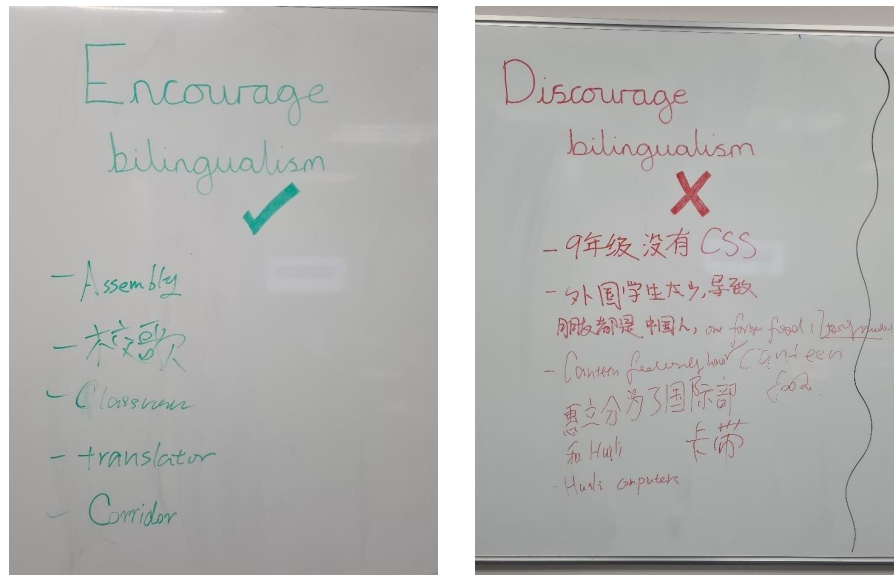 Encourage
bilingualism
- Assembly
- 校歌
- Classroom
- translator
- Corridor
Discourage
bilingualism
- 9年级没有CSS
- 外国学生太少,导致
朋友都是中国人,
- Canteen
Canteen
food
惠立分为了国际部
和Huili
卡带
- Huili computers